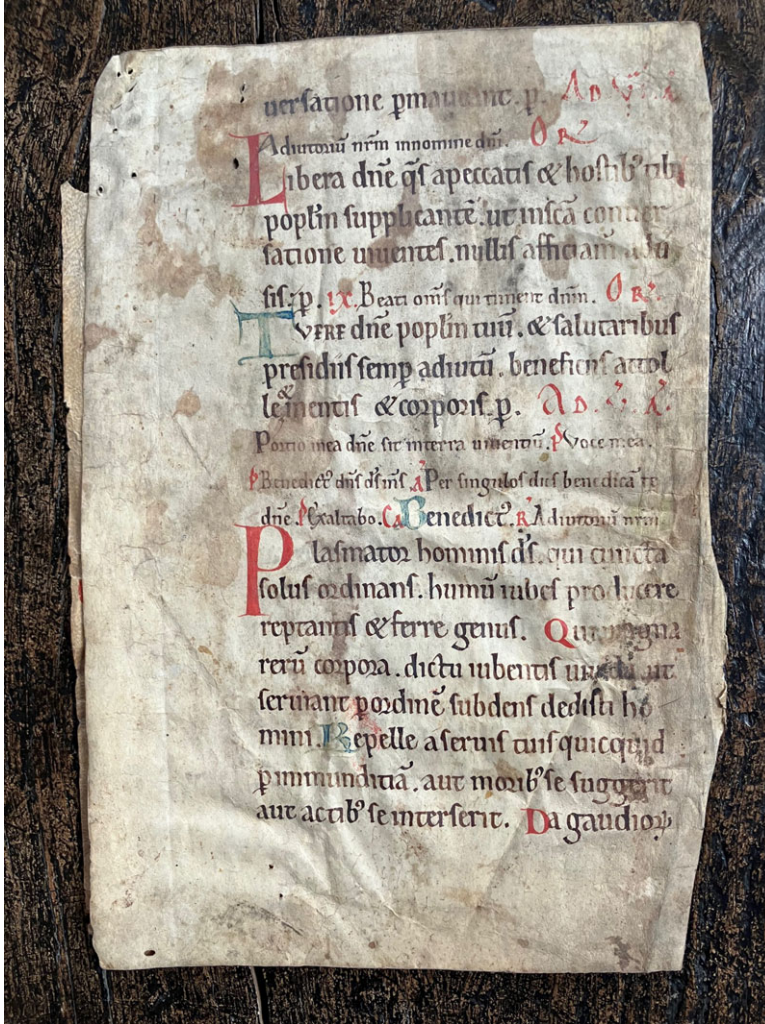 uersatione p̄maneant. p̄. AD. V̄. A.
Adiutoriū nr̄m innomine dn̄i. OR̄
Libera dn̄e q̄s apeccatis & hostib; tibi
popl̄m supplicantē. ut insc̄a conuer
satione uiuentes. nullis afficiant̄ adu
sis. p̄. IX. Beati om̄s qui timent dn̄m. OR̄.
TVERE dn̄e popl̄m tuū. & salutaribus
presidiis semp̄ adiutū. beneficiis attol
le & mentis & corporis. p̄. AD. V̄. A.
Portio mea dn̄e sit interra uiuentiū. P̄ Voce mea.
P̄ Benedict; dn̄s d̄s m̄s. A Per singulos dies benedicā te
dn̄e. P̄ Exaltabo. Ca Benedict;. R̄ Adiutoriū nr̄m
Plasmator hominis d̄s. qui cuncta
solus ordinans. humū iubes producere
reptantis & ferre genus. Qui magna
rerū corpora. dictu iubentis uiuida ut
seruiant p̄ ordinē subdens dedisti ho
mini. Repelle a seruis tuis quicquid
p̄ inmunditiā. aut morib; se suggerit
aut actib; se interserit. Da gaudiorꝝ